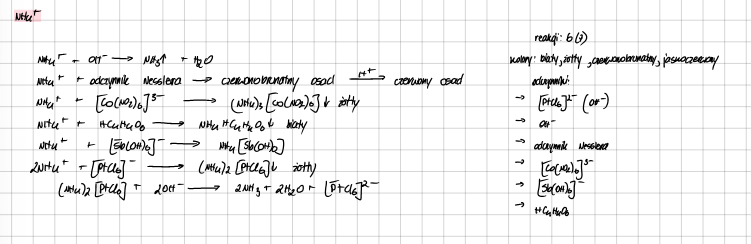 NH₄⁺
NH₄⁺ + OH⁻ → NH₃↑ + H₂O
NH₄⁺ + odczynnik Nesslera → czerwonobrunatny osad —H⁺→ czerwony osad
NH₄⁺ + [Co(NO₂)₆]³⁻ → (NH₄)₃[Co(NO₂)₆]↓ żółty
NH₄⁺ + HC₄H₄O₆ → NH₄HC₄H₄O₆↓ biały
NH₄⁺ + [Sb(OH)₆]⁻ → NH₄[Sb(OH)₆]
2NH₄⁺ + [PtCl₆]⁻ → (NH₄)₂[PtCl₆]↓ żółty
(NH₄)₂[PtCl₆] + 2OH⁻ → 2NH₃ + 2H₂O + [PtCl₆]²⁻
reakcji: 6(7)
kolory: biały, żółty, czerwonobrunatny, jasnoczerwony
odczynniki:
→ [PtCl₆]²⁻ (OH⁻)
→ OH⁻
→ odczynnik Nesslera
→ [Co(NO₂)₆]³⁻
→ [Sb(OH)₆]⁻
→ HC₄H₄O₆